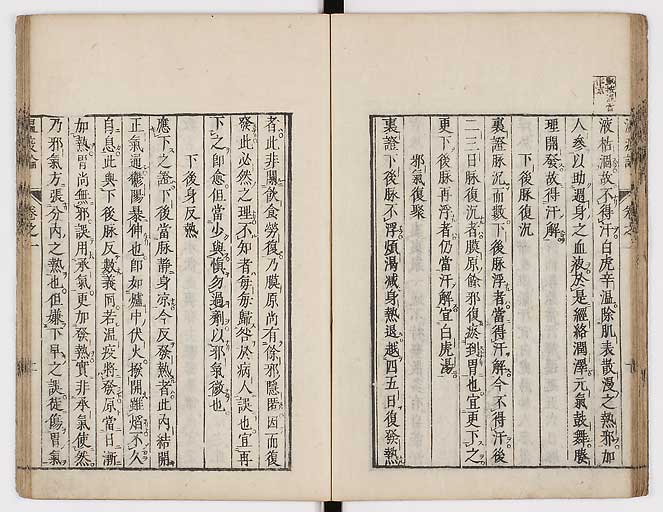 液枯涸故不得汗白虎辛温除肌表散漫之熱邪加
人參以助週身之血液於是經絡潤澤元氣鼓舞腠
理開發故得汗解
下後脉復沉
裏證脉沉而數下後脉浮者當得汗解今不得汗後
二三日脉復沉者膜原餘邪復瘀到胃也宜更下之
更下後脉再浮者仍當汗解宜白虎湯
邪氣復聚
裏證下後脉不浮煩渴减身熱退越四五日復發熱
者此非關飲食勞復乃膜原尚有餘邪隱匿因而復
發此必然之理不知者每每歸咎於病人誤也宜再
下之即愈但當少與慎勿過劑以邪氣微也
下後身反熱
應下之證下後當脉靜身凉今反發熱者此内結開
正氣通鬱陽暴伸也即如爐中伏火撥開雖焰不久
自息此與下後脉反數義同若温疫將發原當日漸
加熱胃尚無邪誤用承氣更加發熱實非承氣使然
乃邪氣方張分内之熱也但嫌下早之誤徒傷胃氣
温疫論
卷之一